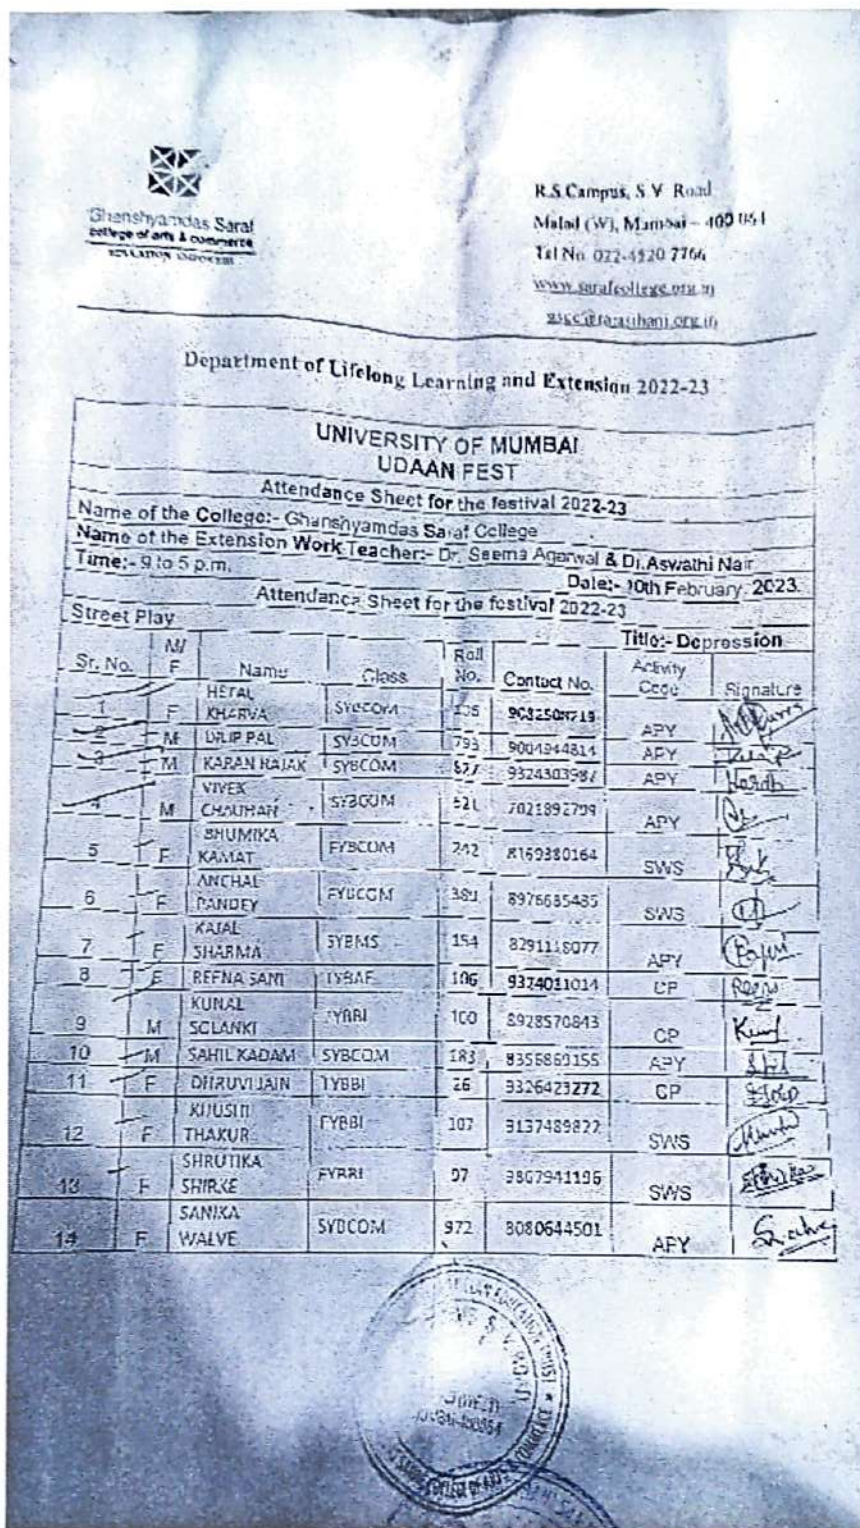 Ghanshyamdas Saraf
college of arts & commerce
R.S.Campus, S.V. Road
Malad (W), Mumbai – 400 064
Tel No. 022-4520 7766
www.sarafcollege.org.in
gscc@rajasthani.org.in
Department of Lifelong Learning and Extension 2022-23
UNIVERSITY OF MUMBAI
UDAAN FEST
Attendance Sheet for the festival 2022-23
Name of the College:- Ghanshyamdas Saraf College
Name of the Extension Work Teacher:- Dr. Seema Agarwal & Dr.Aswathi Nair
Time:- 9 to 5 p.m. Date:- 10th February, 2023.
Attendance Sheet for the festival 2022-23
Street Play Title:- Depression
Sr. No. M/ F Name Class Roll No. Contact No. Activity Code Signature
1 F HETAL KHARVA SYBCOM APY
2 M DILIP PAL SYBCOM 793 9004944814 APY
3 M KARAN RAJAK SYBCOM 827 9324303987 APY
4 M VIVEK CHAUHAN SYBCOM 7021892709 APY
5 F BHUMIKA KAMAT FYBCOM 242 8169380164 SWS
6 F ANCHAL PANDEY FYBCOM 8976685485 SWS
7 F KAJAL SHARMA SYBMS 154 8291118077 APY
8 F REENA SANI TYBAF 106 9324011014 CP Reena
9 M KUNAL SOLANKI TYBBI 100 8928570843 CP
10 M SAHIL KADAM SYBCOM 183 8356869155 APY
11 F DHRUVI JAIN TYBBI 26 9326423272 CP
12 F KHUSHI THAKUR FYBBI 107 9137489822 SWS
13 F SHRUTIKA SHIRKE FYBBI 97 9867941196 SWS
14 F SANIKA WALVE SYBCOM 972 8080644501 APY